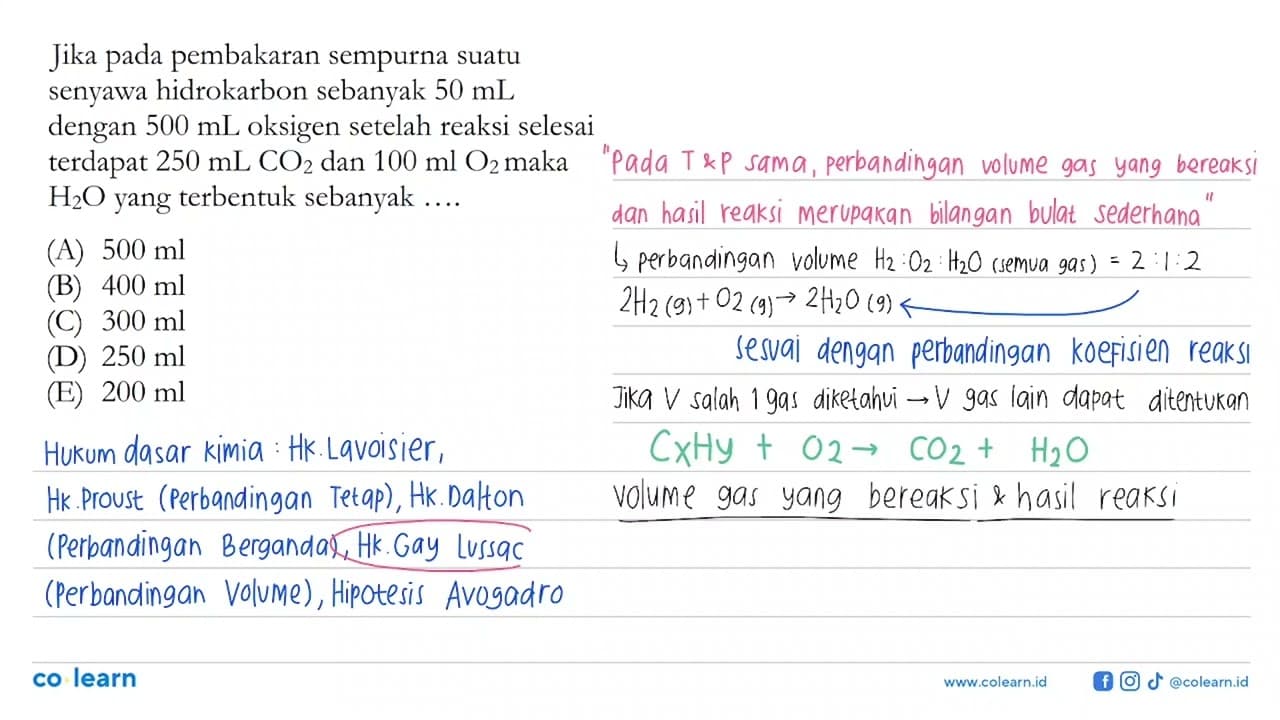 Jika pada pembakaran sempurna suatu
senyawa hidrokarbon sebanyak 50 mL
dengan 500 mL oksigen setelah reaksi selesai
terdapat 250 mL CO₂ dan 100 ml O₂ maka
H₂O yang terbentuk sebanyak ….
(A) 500 ml
(B) 400 ml
(C) 300 ml
(D) 250 ml
(E) 200 ml
Hukum dasar kimia : Hk. Lavoisier,
Hk. Proust (Perbandingan Tetap), Hk. Dalton
(Perbandingan Berganda), Hk. Gay Lussac
(Perbandingan Volume), Hipotesis Avogadro
"Pada T & P sama, perbandingan volume gas yang bereaksi
dan hasil reaksi merupakan bilangan bulat sederhana"
↳ perbandingan volume H₂ : O₂ : H₂O (semua gas) = 2 : 1 : 2
2H₂ (g) + O₂ (g) → 2H₂O (g)
sesuai dengan perbandingan koefisien reaksi
Jika V salah 1 gas diketahui → V gas lain dapat ditentukan
CxHy + O₂ → CO₂ + H₂O
volume gas yang bereaksi & hasil reaksi
co learn
www.colearn.id
@colearn.id